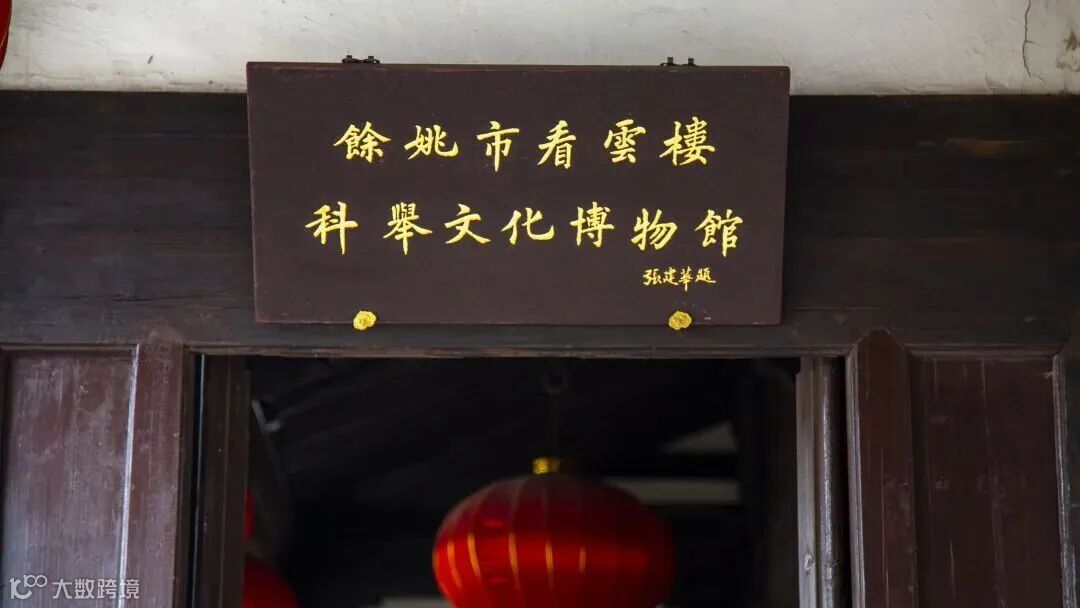 餘姚市看雲樓
科舉文化博物館
張建華題
100 大数跨境